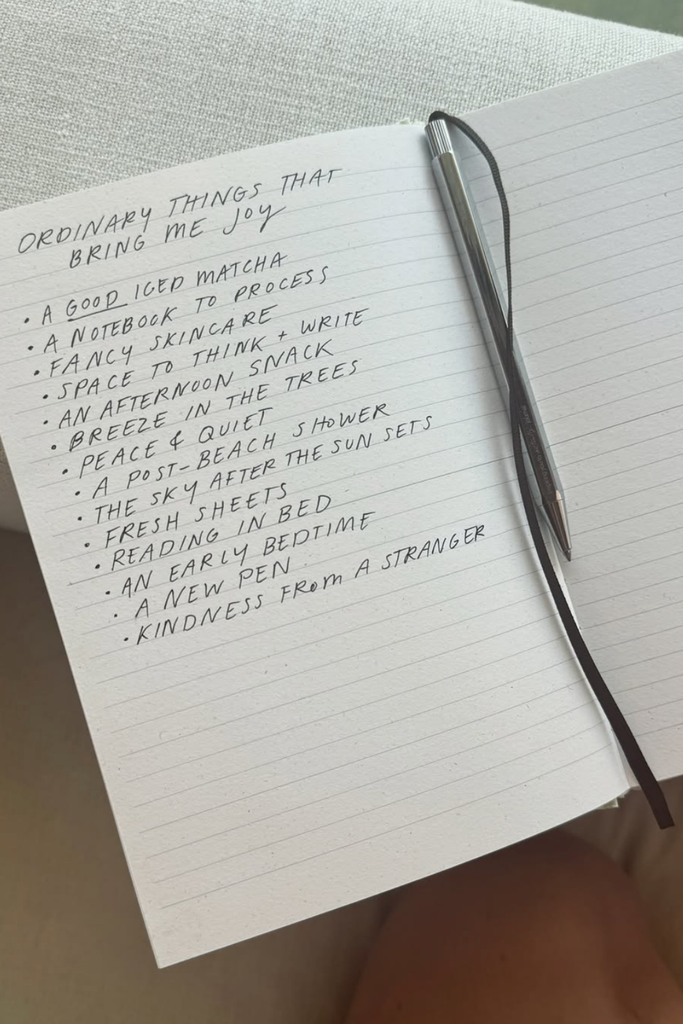 ORDINARY THINGS THAT
BRING ME JOY
• A GOOD ICED MATCHA
• A NOTEBOOK TO PROCESS
• FANCY SKINCARE
• SPACE TO THINK + WRITE
• AN AFTERNOON SNACK
• BREEZE IN THE TREES
• PEACE & QUIET
• A POST-BEACH SHOWER
• THE SKY AFTER THE SUN SETS
• FRESH SHEETS
• READING IN BED
• AN EARLY BEDTIME
• A NEW PEN
• KINDNESS FROM A STRANGER